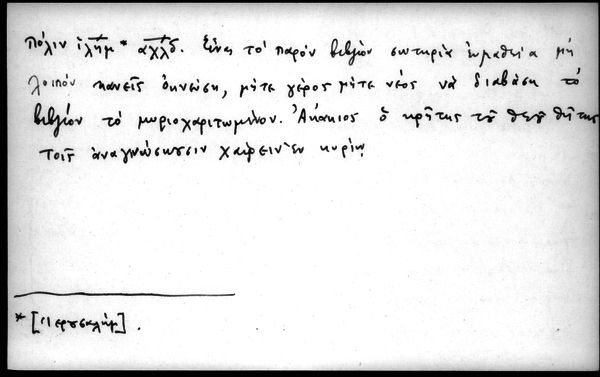 πόλιν ἰλήμ * αχλδ. Εἶναι τὸ παρὸν βιβλίον σωτηρία εὐμαθεία μὴ
λοιπὸν κανεῖς ὀκνεύση, μήτε γέρος μήτε νέος νὰ διαβάση τὸ
βιβλίον τὸ μυριοχαριτωμένον. Ἀκάκιος ὁ κρῆτης τοῦ θεοῦ θύτης
τοῖς ἀναγνώσκουσιν χαίρειν ἐν κυρίῳ
* [Ἱερουσαλήμ].